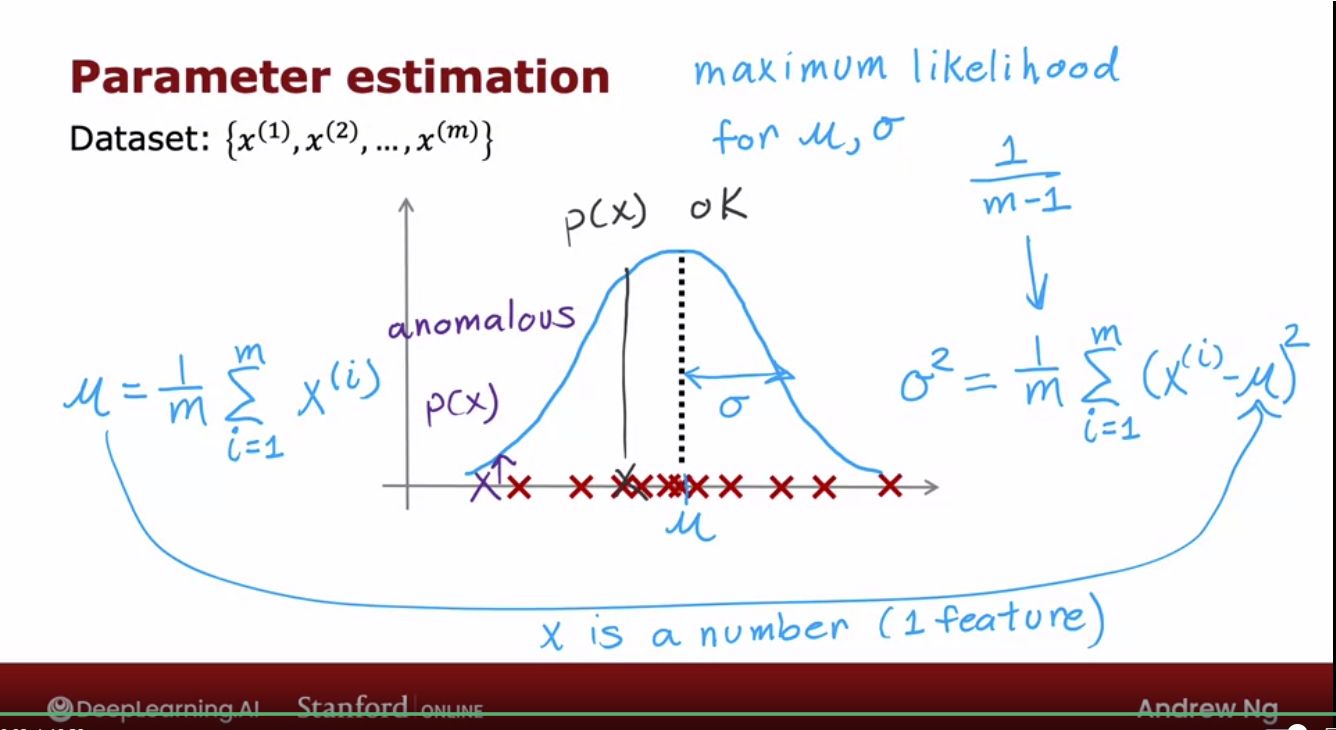 Parameter estimation
Dataset: {x^(1), x^(2), ..., x^(m)}
maximum likelihood
for μ, σ
1/(m-1)
p(x) ok
anomalous
p(x)
μ = 1/m ∑_{i=1}^{m} x^(i)
σ
σ² = 1/m ∑_{i=1}^{m} (x^(i) - μ)²
μ
x is a number (1 feature)
DeepLearning.AI Stanford ONLINE Andrew Ng